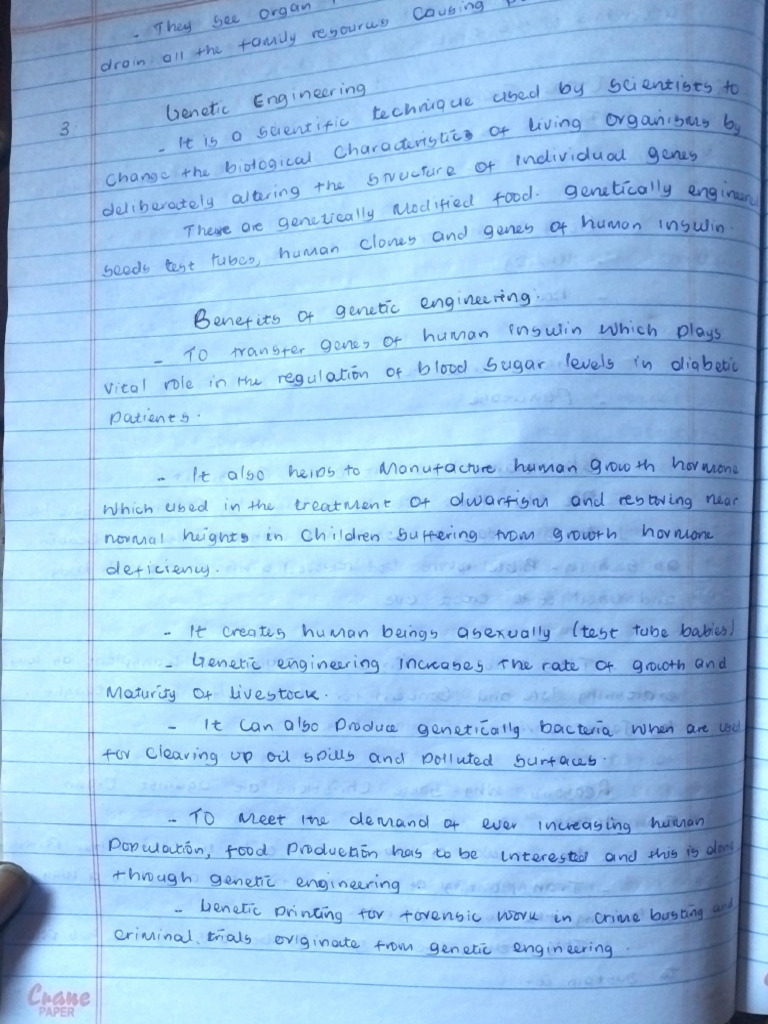 - They see organ
drain all the family resources causing
3 Genetic Engineering
- It is a scientific technique used by scientists to
change the biological characteristics of living organisms by
deliberately altering the structure of individual genes
These are genetically modified food. genetically engineer
seeds test tubes, human clones and genes of human insulin.
Benefits of genetic engineering.
- To transfer genes of human insulin which plays
vital role in the regulation of blood sugar levels in diabetic
patients.
- It also helps to Manufacture human growth hormone
which used in the treatment of dwarfism and restoring near
normal heights in children suffering from growth hormone
deficiency.
- It creates human beings asexually (test tube babies)
- Genetic engineering increases the rate of growth and
Maturity of livestock.
- It can also produce genetically bacteria when are used
for clearing up oil spills and polluted surfaces.
- To Meet the demand of ever increasing human
population, food production has to be interested and this is done
through genetic engineering.
- Genetic printing for forensic work in crime busting and
criminal trials originate from genetic engineering.
Crane
PAPER